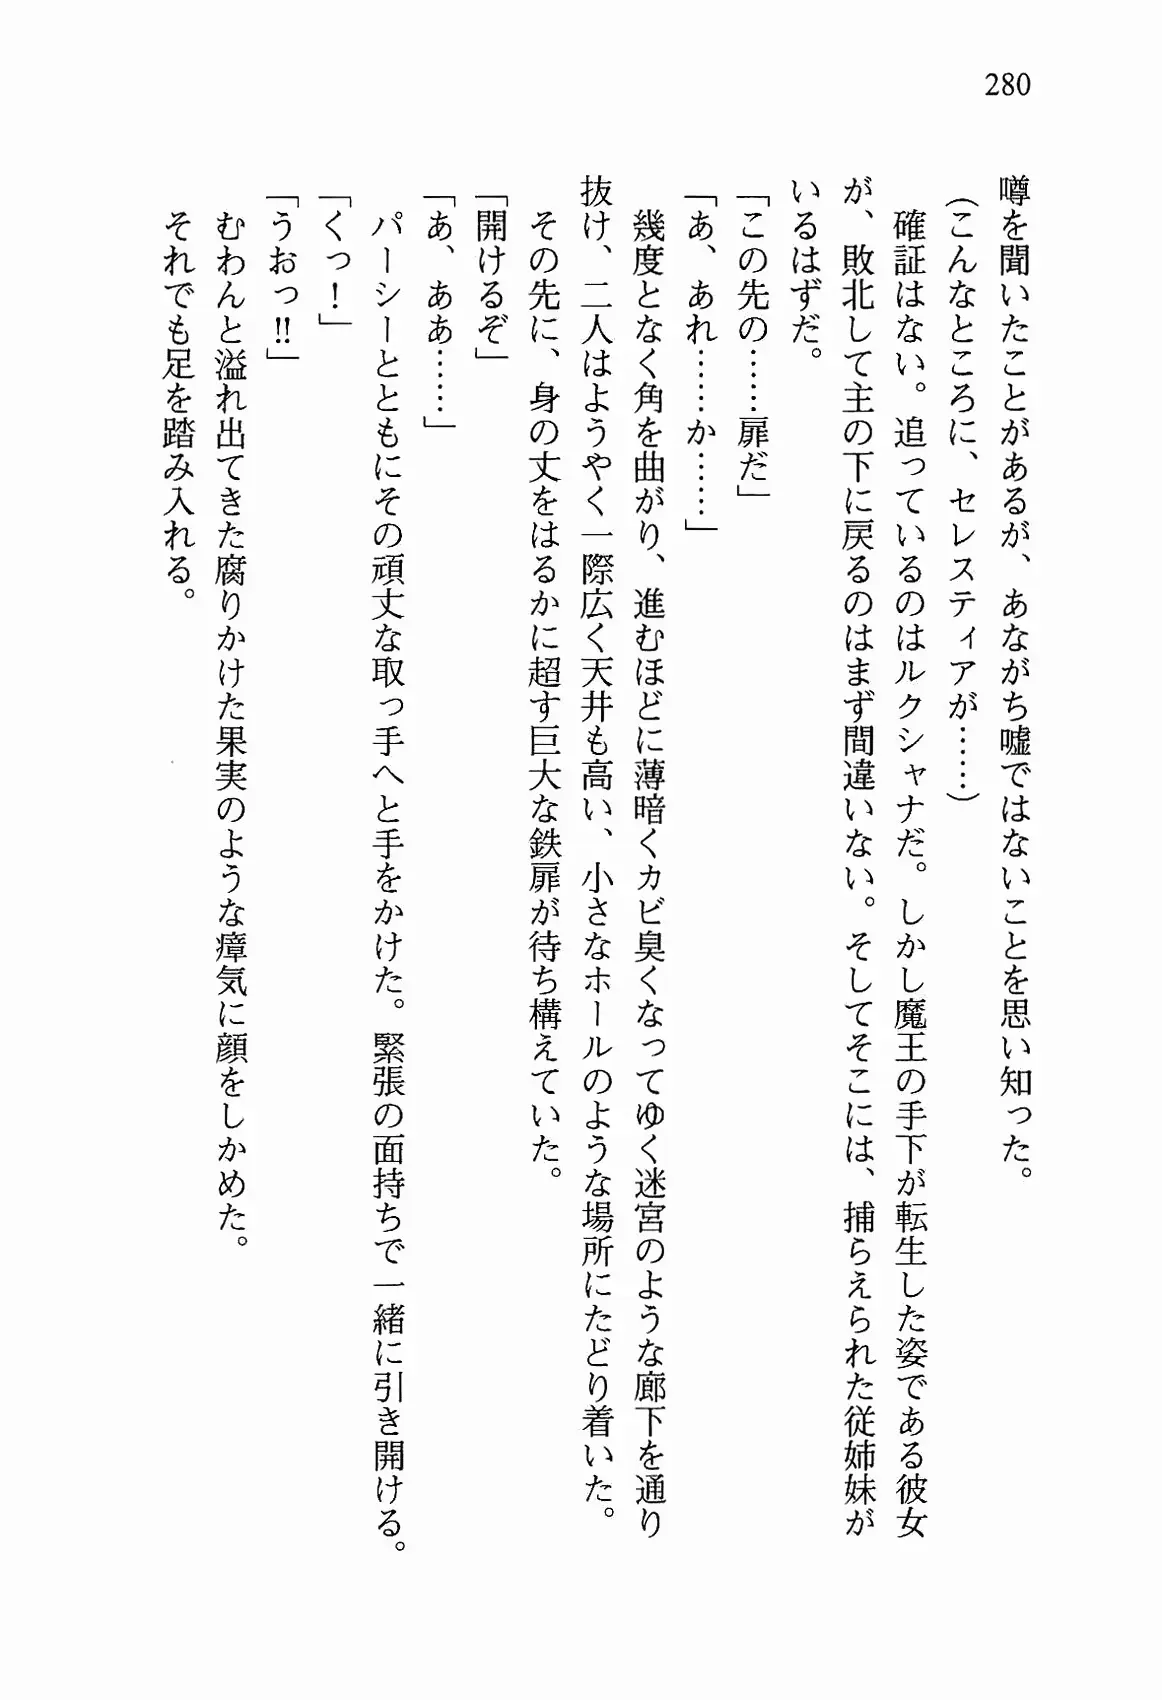 280
噂を聞いたことがあるが、あながち嘘ではないことを思い知った。
(こんなところに、セレスティアが……)
確証はない。追っているのはルクシャナだ。しかし魔王の手下が転生した姿である彼女
が、敗北して主の下に戻るのはまず間違いない。そしてそこには、捕らえられた従姉妹が
いるはずだ。
「この先の……扉だ」
「あ、あれ……か……」
幾度となく角を曲がり、進むほどに薄暗くカビ臭くなってゆく迷宮のような廊下を通り
抜け、二人はようやく一際広く天井も高い、小さなホールのような場所にたどり着いた。
その先に、身の丈をはるかに超す巨大な鉄扉が待ち構えていた。
「開けるぞ」
「あ、ああ……」
パーシーとともにその頑丈な取っ手へと手をかけた。緊張の面持ちで一緒に引き開ける。
「くっ！」
「うおっ!!」
むわんと溢れ出てきた腐りかけた果実のような瘴気に顔をしかめた。
それでも足を踏み入れる。